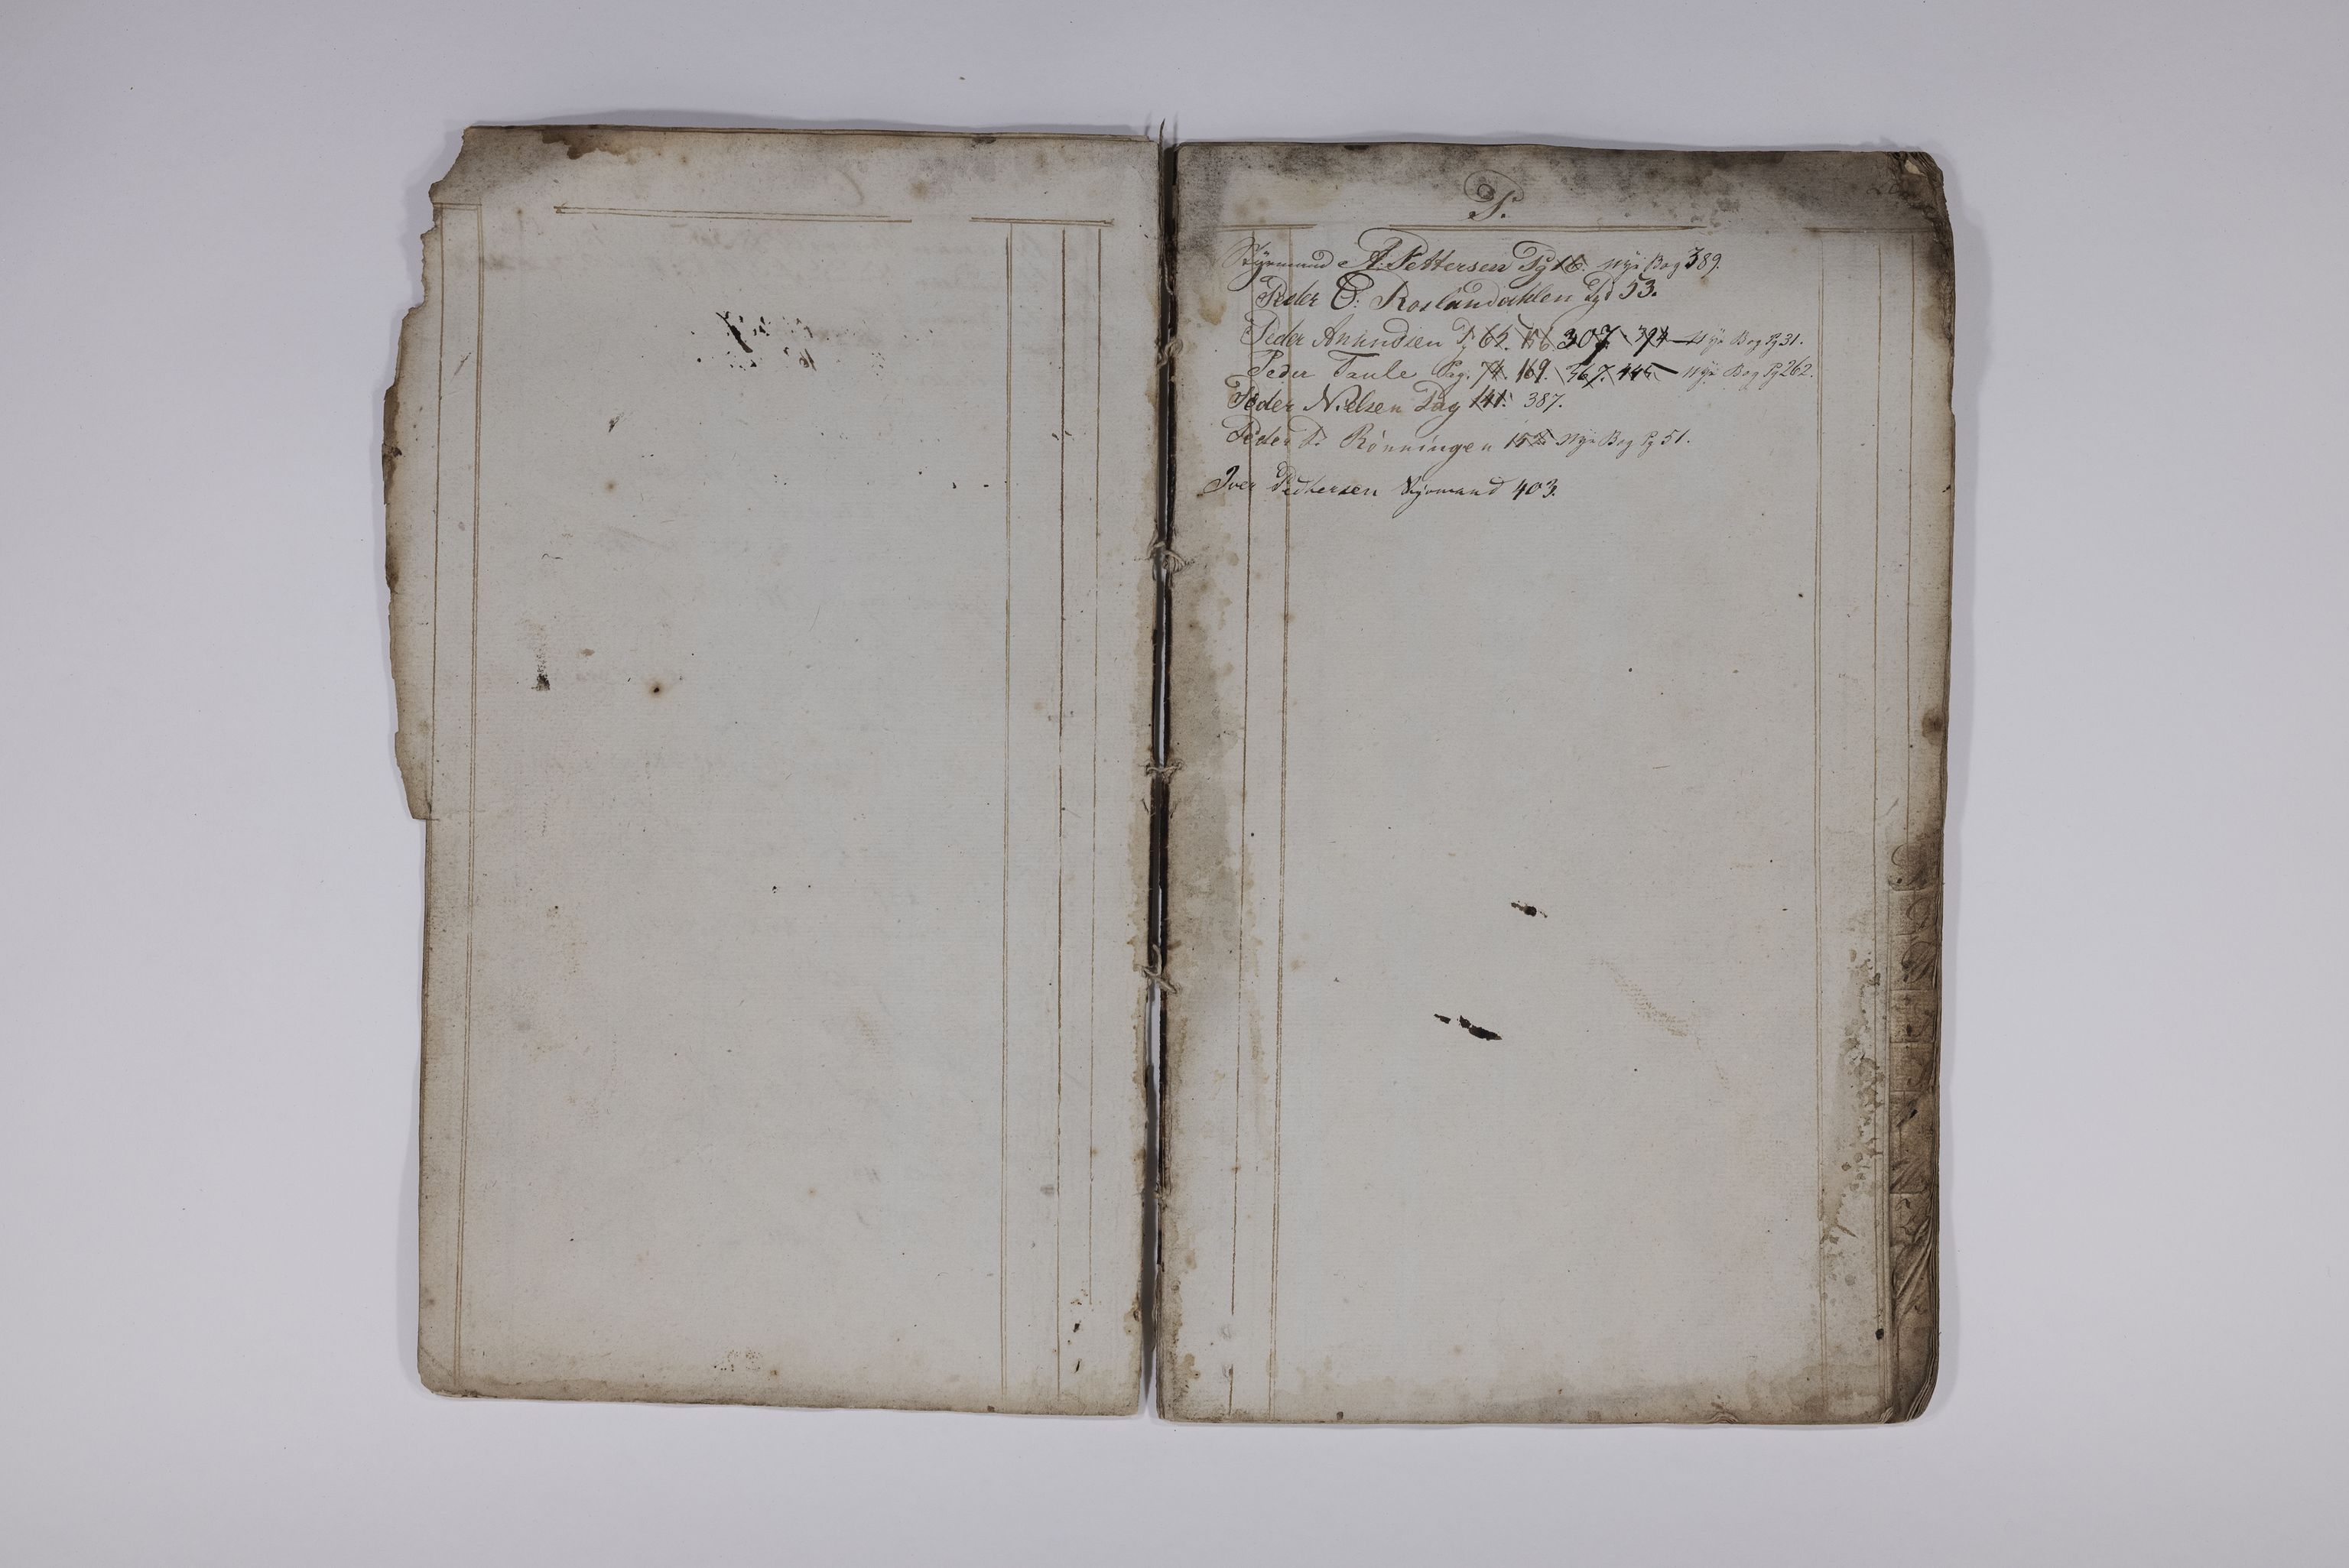 P.
Styrmand A. Pettersen Pg 16. Nye Bog 389.
Peder O: Roslandahlen Pg 53.
Peder Amundsen Pg 62. 156 307. 394 Nye Bog Pg 31.
Peder Taule Pag. 74. 169. 367. 445 Nye Bog Pg 262.
Peder Nielsen Pag 141. 387.
Peder Rönningen 152 Nye Bog Pg 51.
Iver Pedhersen Styrmand 403.